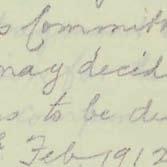 Committ
may decid
s to be du
Feb 191